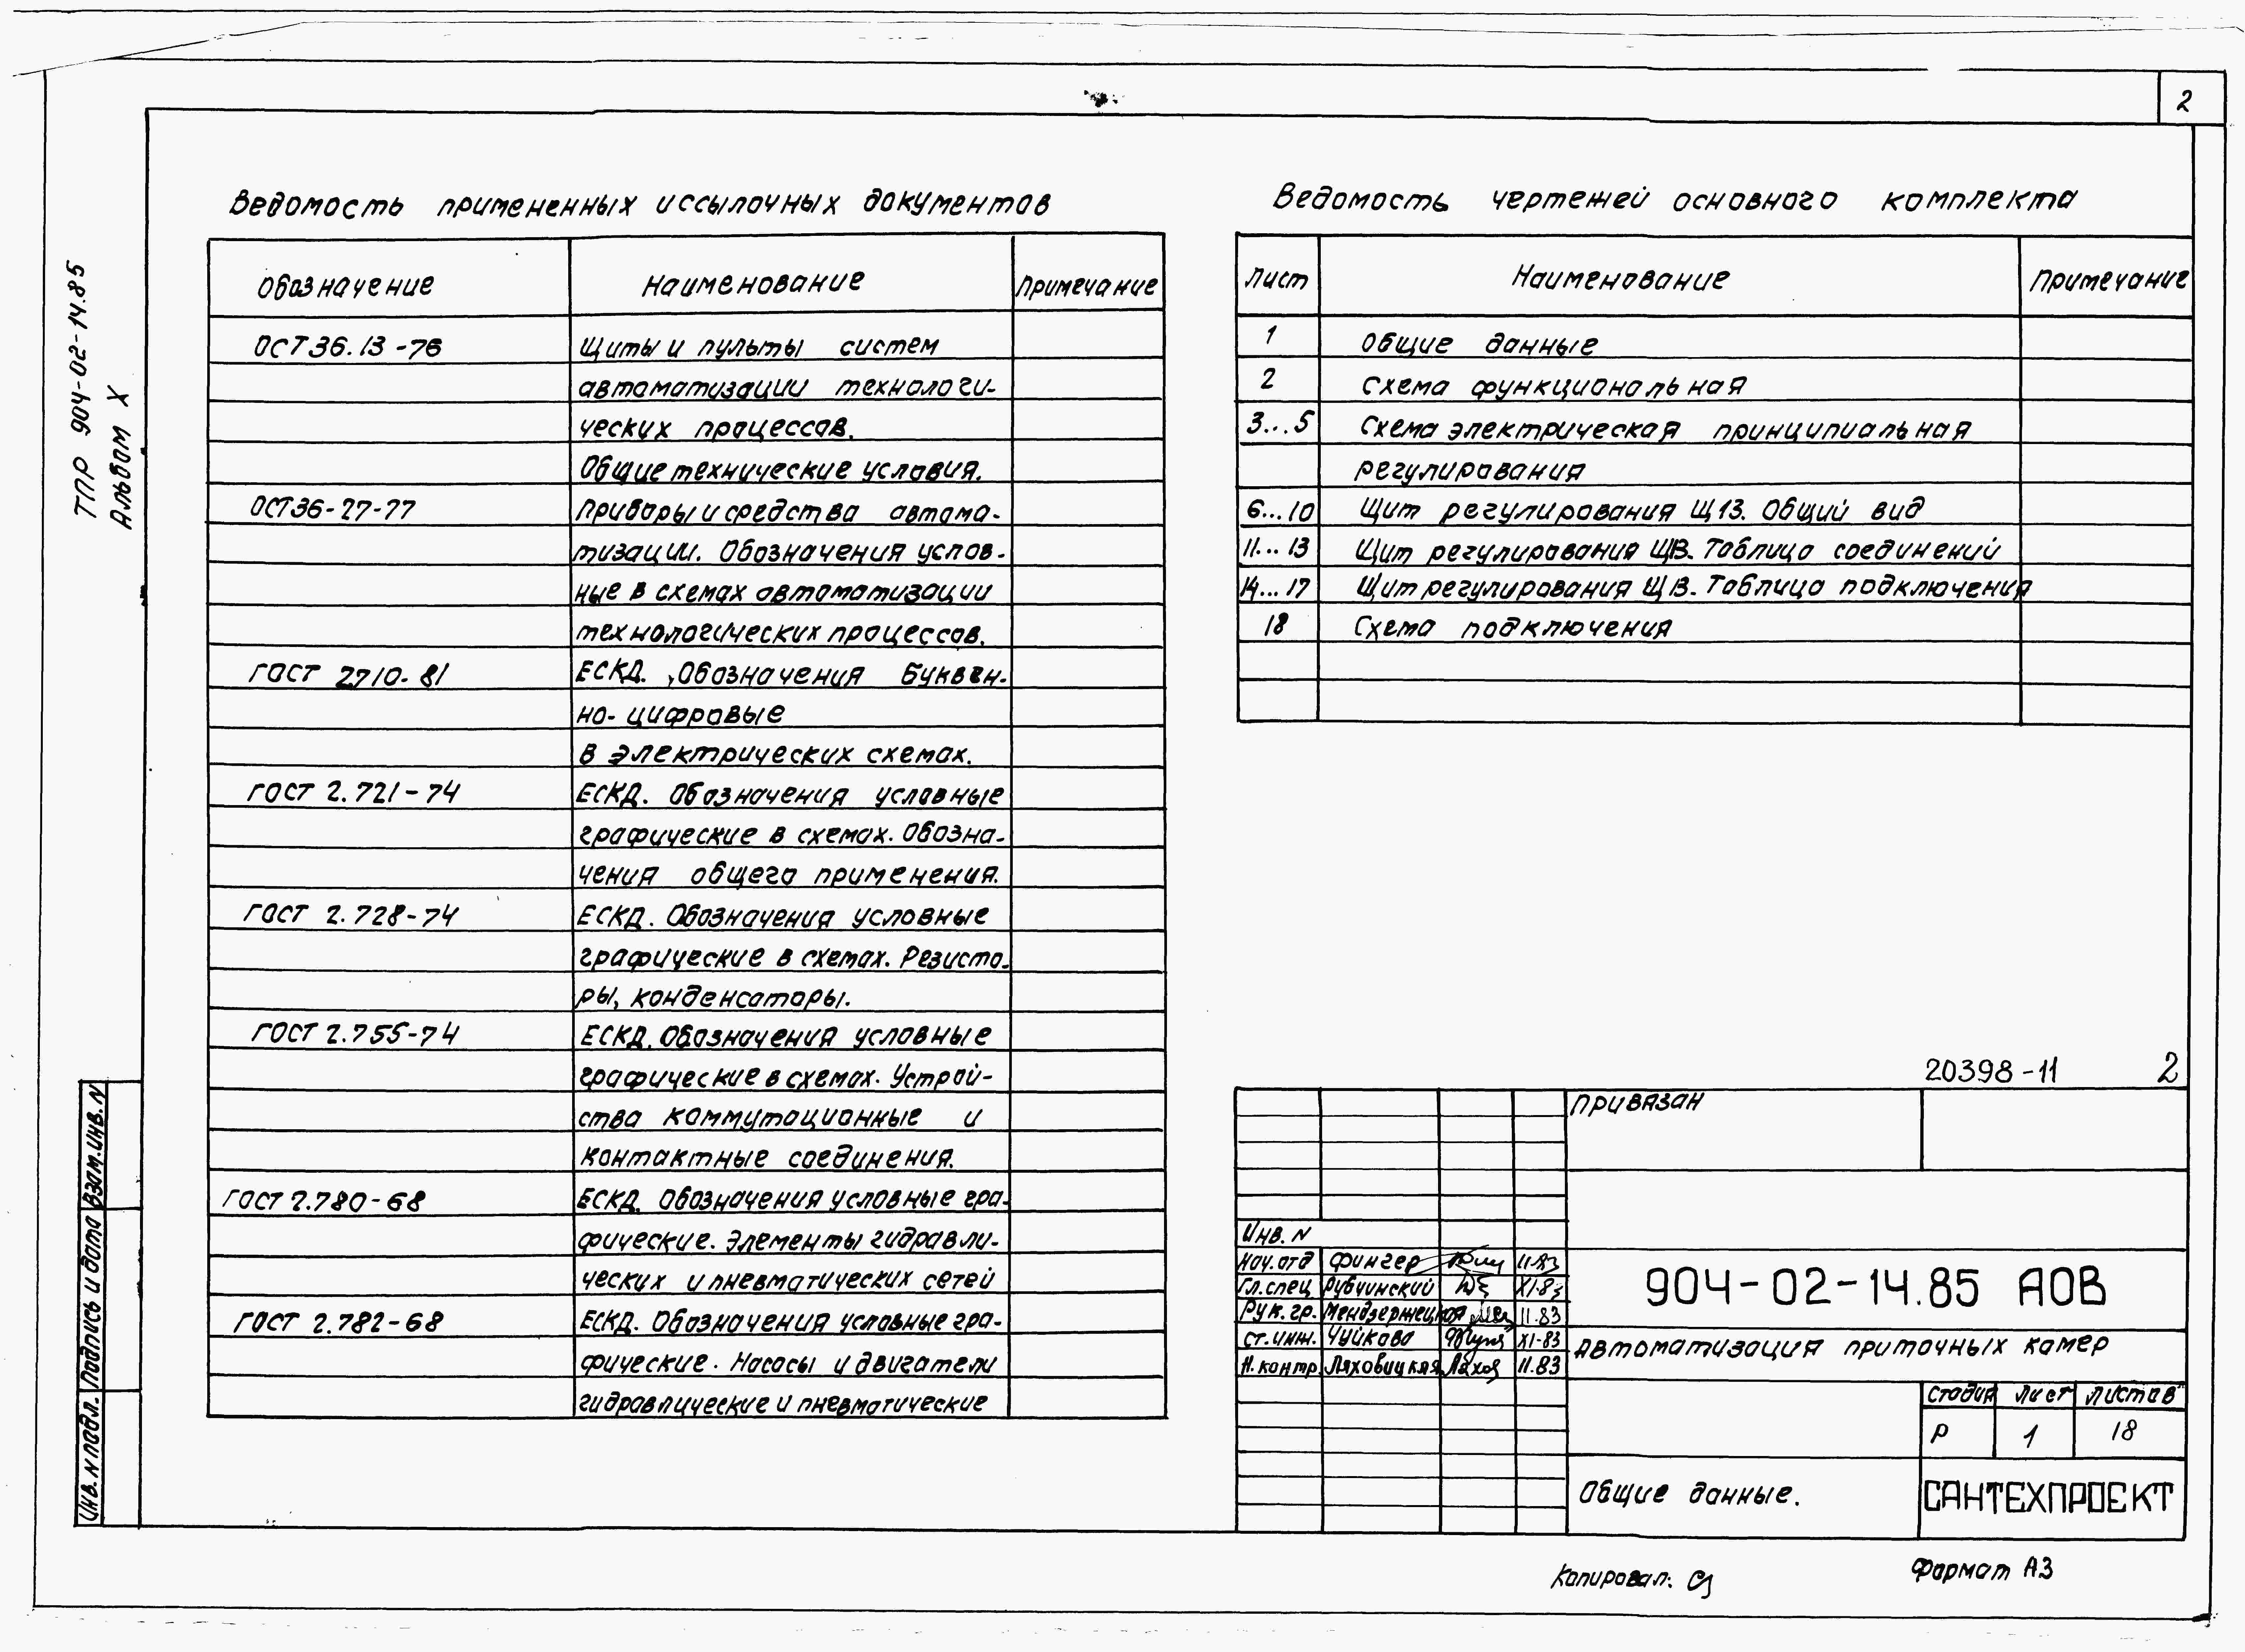 2
ТПР 904-02-14.85
Альбом X
Ведомость примененных и ссылочных документов
Обозначение Наименование Примечание
ОСТ 36.13-76 Щиты и пульты систем
автоматизации технологи-
ческих процессов.
Общие технические условия.
ОСТ 36-27-77 Приборы и средства автома-
тизации. Обозначения услов-
ные в схемах автоматизации
технологических процессов.
ГОСТ 2.710-81 ЕСКД. Обозначения буквен-
но-цифровые
в электрических схемах.
ГОСТ 2.721-74 ЕСКД. Обозначения условные
графические в схемах. Обозна-
чения общего применения.
ГОСТ 2.728-74 ЕСКД. Обозначения условные
графические в схемах. Резисто-
ры, конденсаторы.
ГОСТ 2.755-74 ЕСКД. Обозначения условные
графические в схемах. Устрой-
ства коммутационные и
контактные соединения.
ГОСТ 2.780-68 ЕСКД. Обозначения условные гра-
фические. Элементы гидравли-
ческих и пневматических сетей
ГОСТ 2.782-68 ЕСКД. Обозначения условные гра-
фические. Насосы и двигатели
гидравлические и пневматические
Ведомость чертежей основного комплекта
Лист Наименование Примечание
1 Общие данные
2 Схема функциональная
3...5 Схема электрическая принципиальная
регулирования
6...10 Щит регулирования Щ13. Общий вид
11...13 Щит регулирования Щ13. Таблица соединений
14...17 Щит регулирования Щ13. Таблица подключения
18 Схема подключения
20398-11 2
Привязан
Инв. N
Нач. отд Фингер 11.83
Гл. спец Рубчинский XI-83
Рук. гр. Мендзержецкая 11.83
Ст. инж. Чуйкова XI-83
Н. контр. Ляховицкая Ляхов 11.83
904-02-14.85 АОВ
Автоматизация приточных камер
Стадия Лист Листов
Р 1 18
Общие данные.
САНТЕХПРОЕКТ
Инв. N подл. Подпись и дата Взам. инв. N
Копировал:
Формат А3